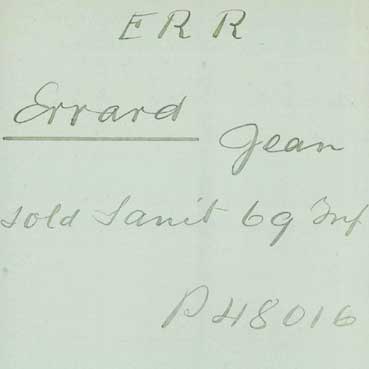 ERR
Errard
Jean
sold Sanit 69 Inf
P 48016